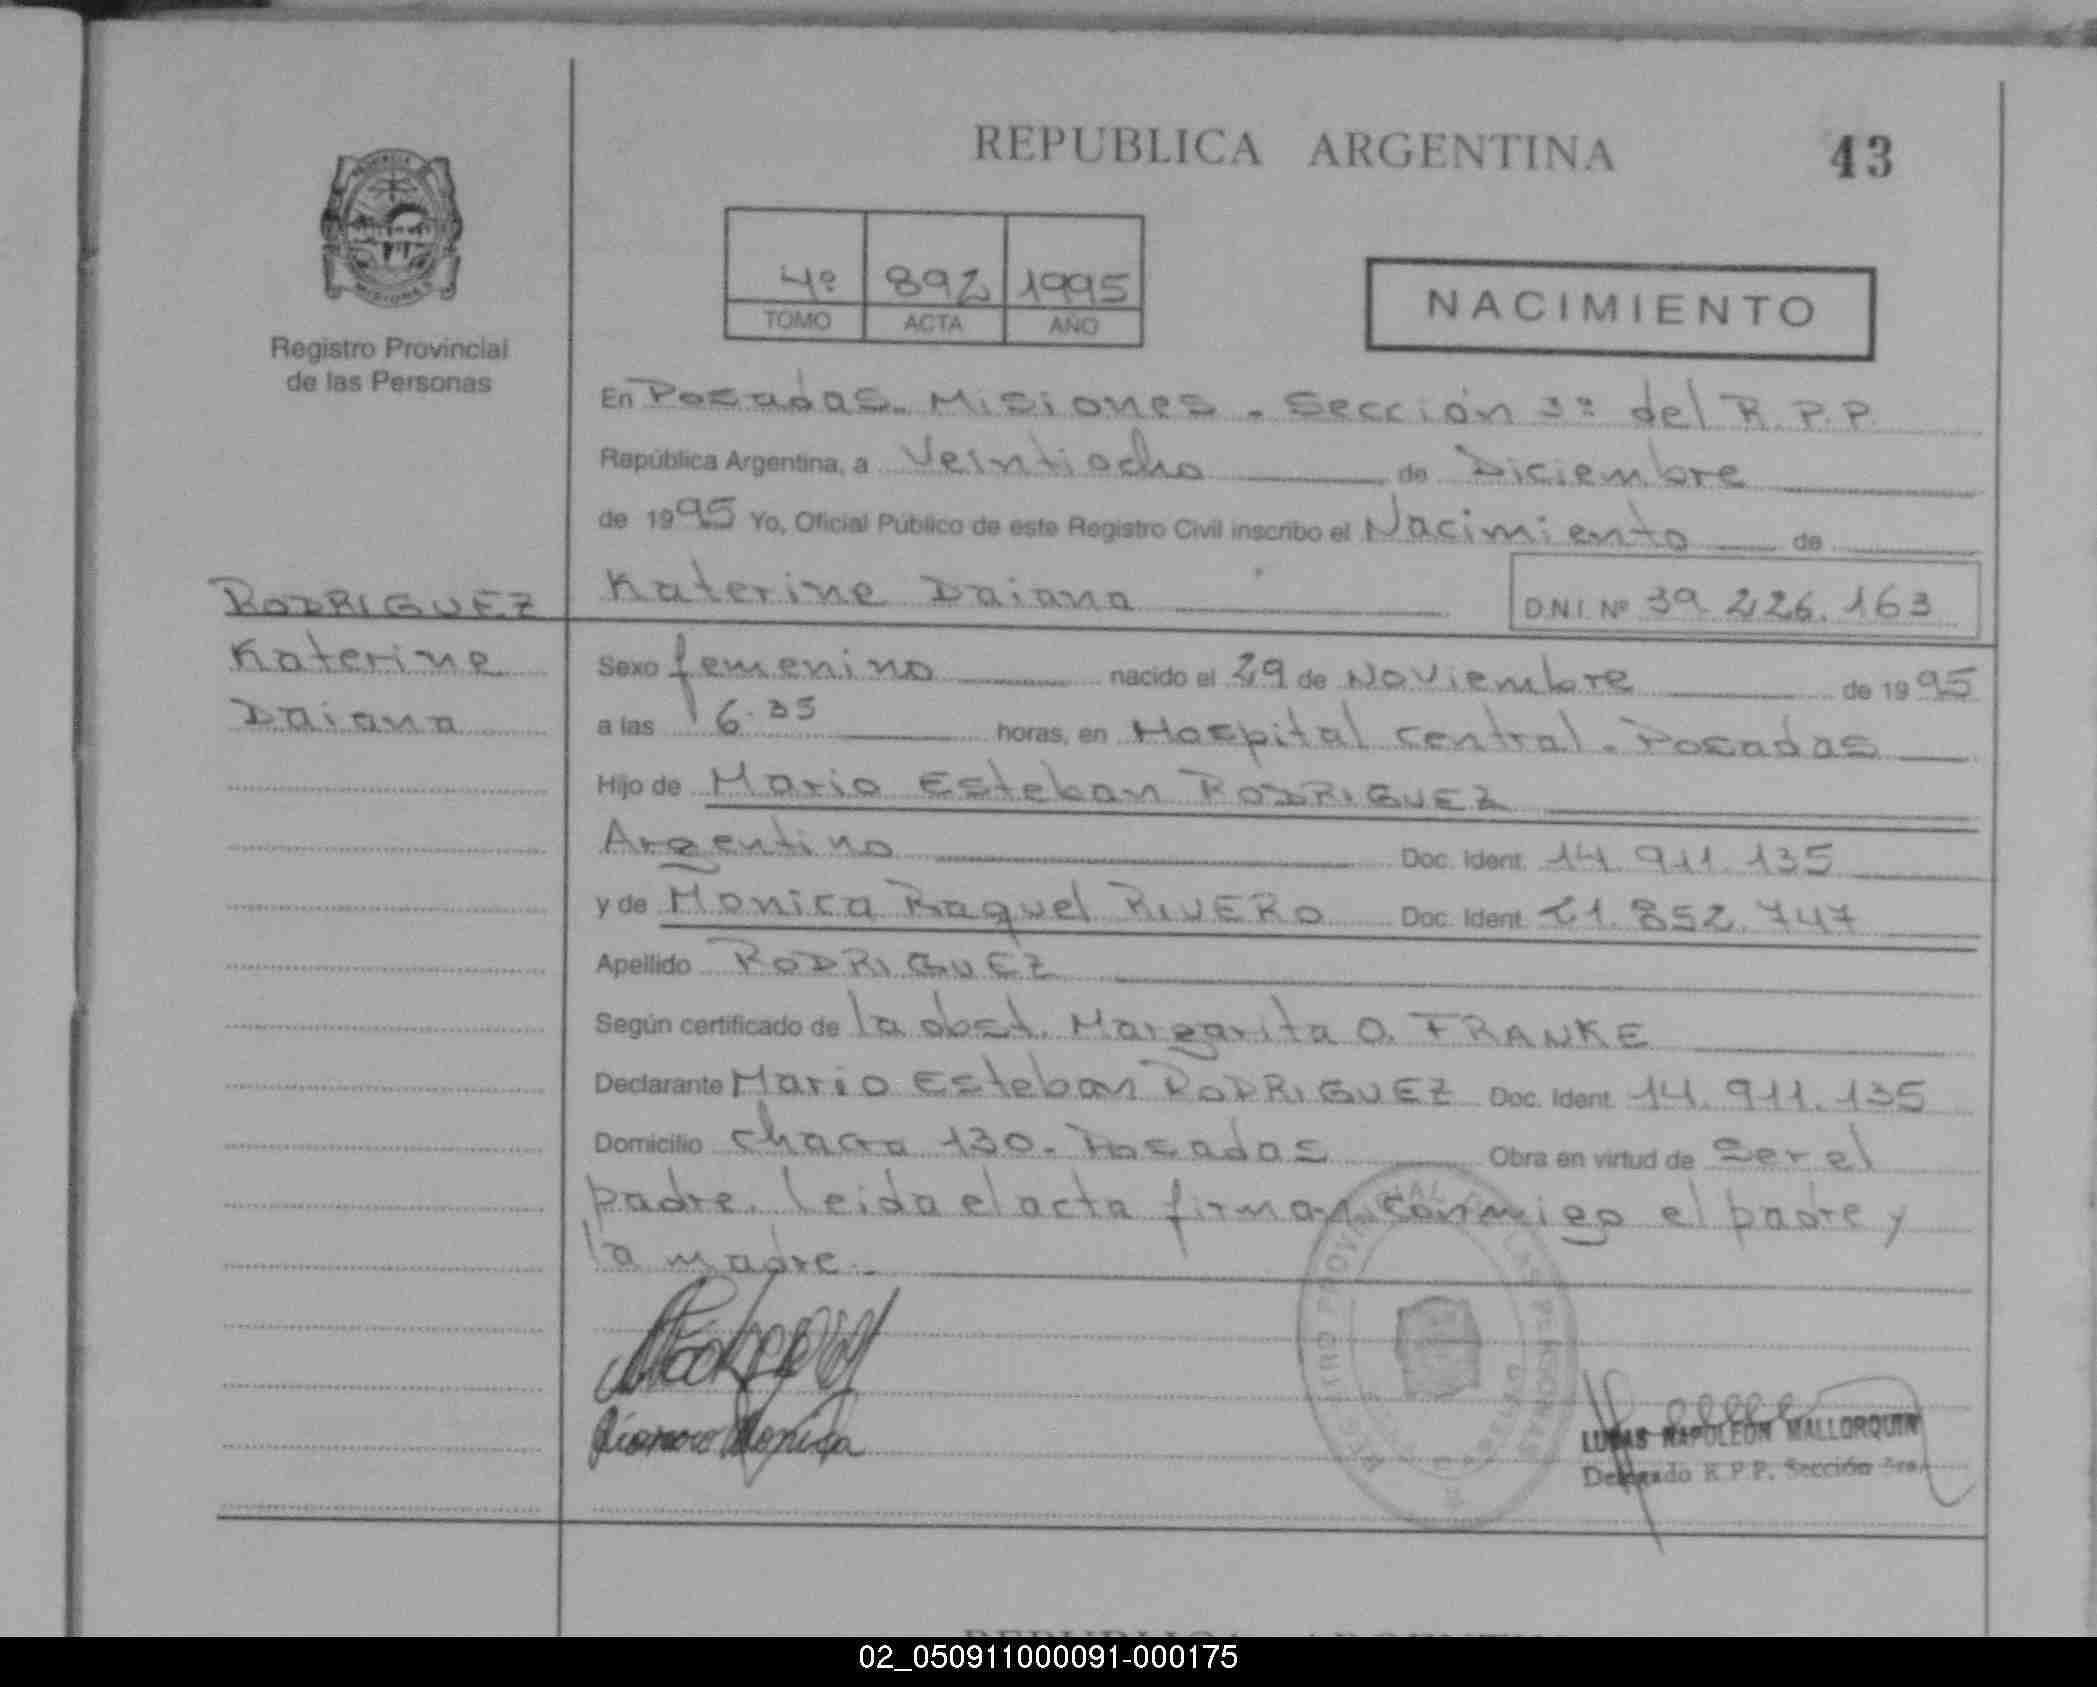 REPUBLICA ARGENTINA 43
4º 892 1995
TOMO ACTA AÑO
NACIMIENTO
MISIONES
Registro Provincial
de las Personas
En Posadas. Misiones. Sección 3ª del R.P.P.
República Argentina, a Veintiocho de Diciembre
de 1995 Yo, Oficial Público de este Registro Civil inscribo el Nacimiento de
RODRIGUEZ
Katerine
Daiana
Katerine Daiana D.N.I. Nº 39.226.163
Sexo femenino nacido el 29 de Noviembre de 1995
a las 16.35 horas, en Hospital central. Posadas
Hijo de Mario Esteban RODRIGUEZ
Argentino Doc. Ident. 14.911.135
y de Monica Raquel RIVERO Doc. Ident. 21.852.747
Apellido RODRIGUEZ
Según certificado de la obst. Margarita O. FRANKE
Declarante Mario Esteban RODRIGUEZ Doc. Ident. 14.911.135
Domicilio chacra 130. Posadas Obra en virtud de Ser el
padre. leida el acta firman conmigo el padre y
la madre.
Monica
REGISTRO PROVINCIAL DE LAS PERSONAS
LUCAS NAPOLEON MALLORQUIN
Delegado R.P.P. Sección 3ra.
REPUBLICA ARGENTINA
02_050911000091-000175